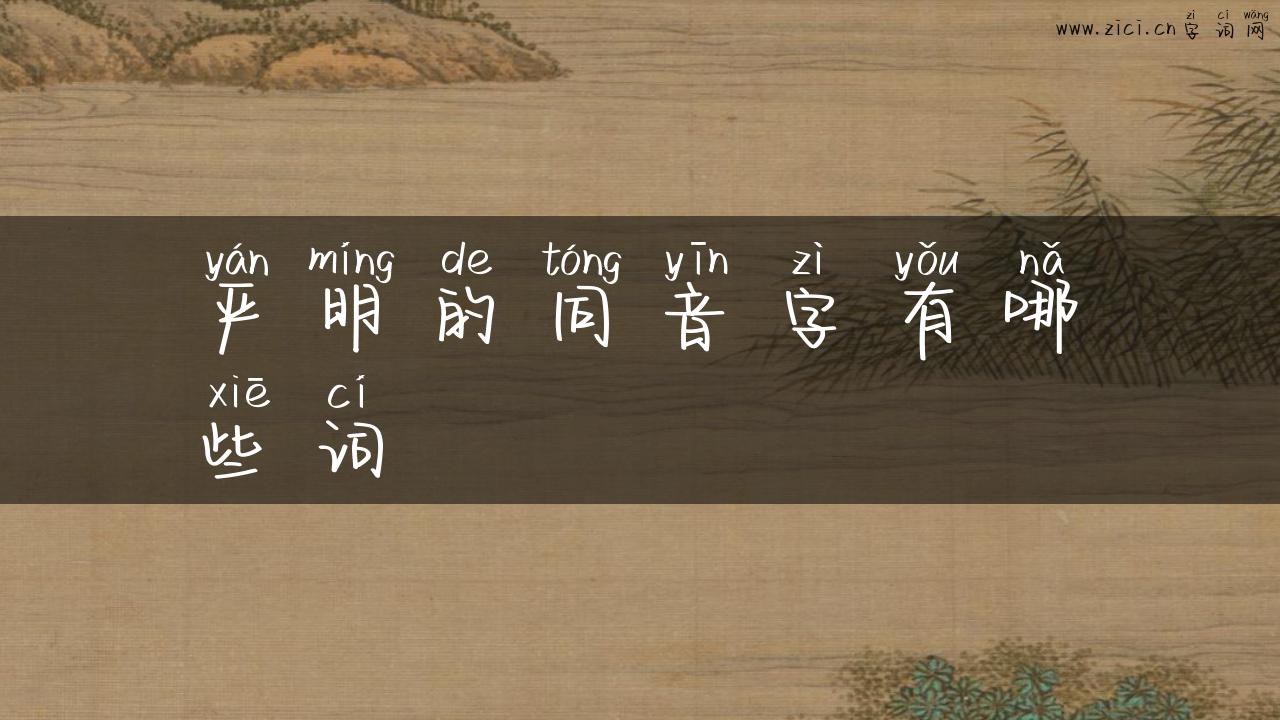 zì cí wǎng
www.zici.cn 字 词 网
yán míng de tóng yīn zì yǒu nǎ
严 明 的 同 音 字 有 哪
xiē cí
些 词